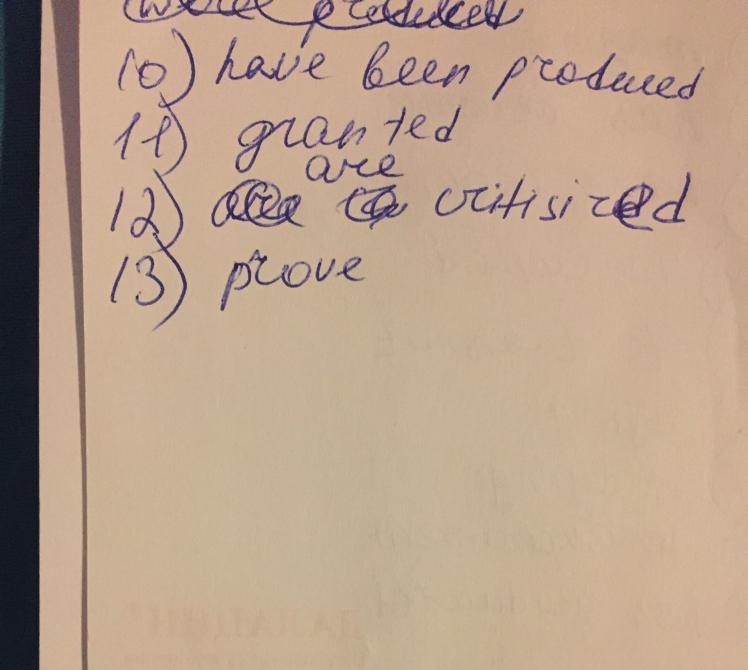 were produced
10) have been produced
11) granted
are
12) critisized
13) prove